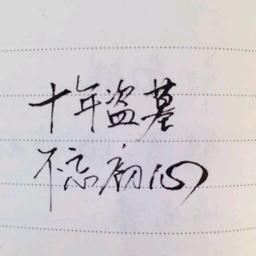 十年盗墓
不忘初心